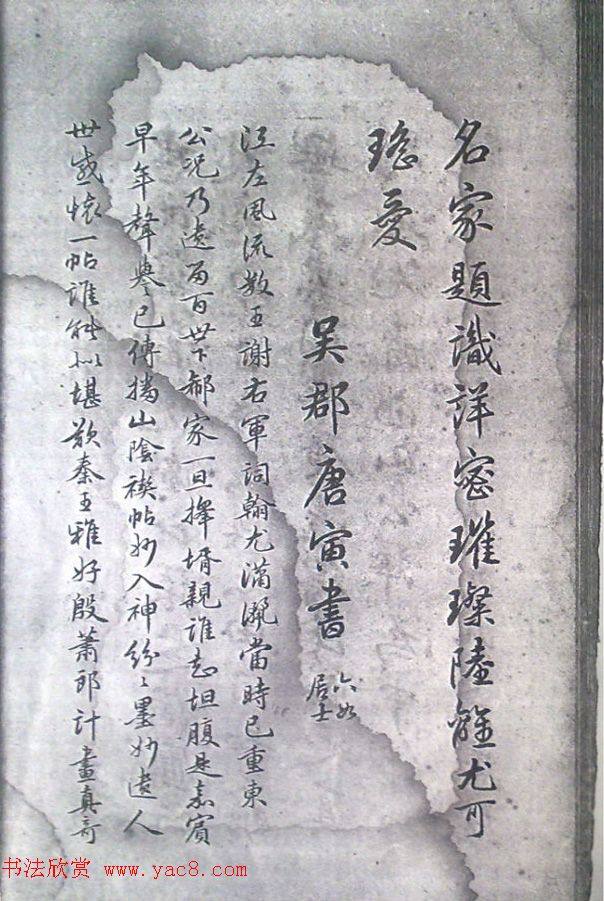 名家題識詳密璀璨陸離尤可
珍愛
吳郡唐寅書
六如
居士
江左風流数王謝右軍詞翰尤瀟灑當時已重東
公况乃遠留百世下郗家一旦擇壻親誰知坦腹是嘉賓
早年聲譽已傳播山陰禊帖妙入神紛〻墨妙遺人
世感懷一帖誰能似堪歎秦王雅好殷蕭郎計畫真奇
书法欣赏 www.yac8.com